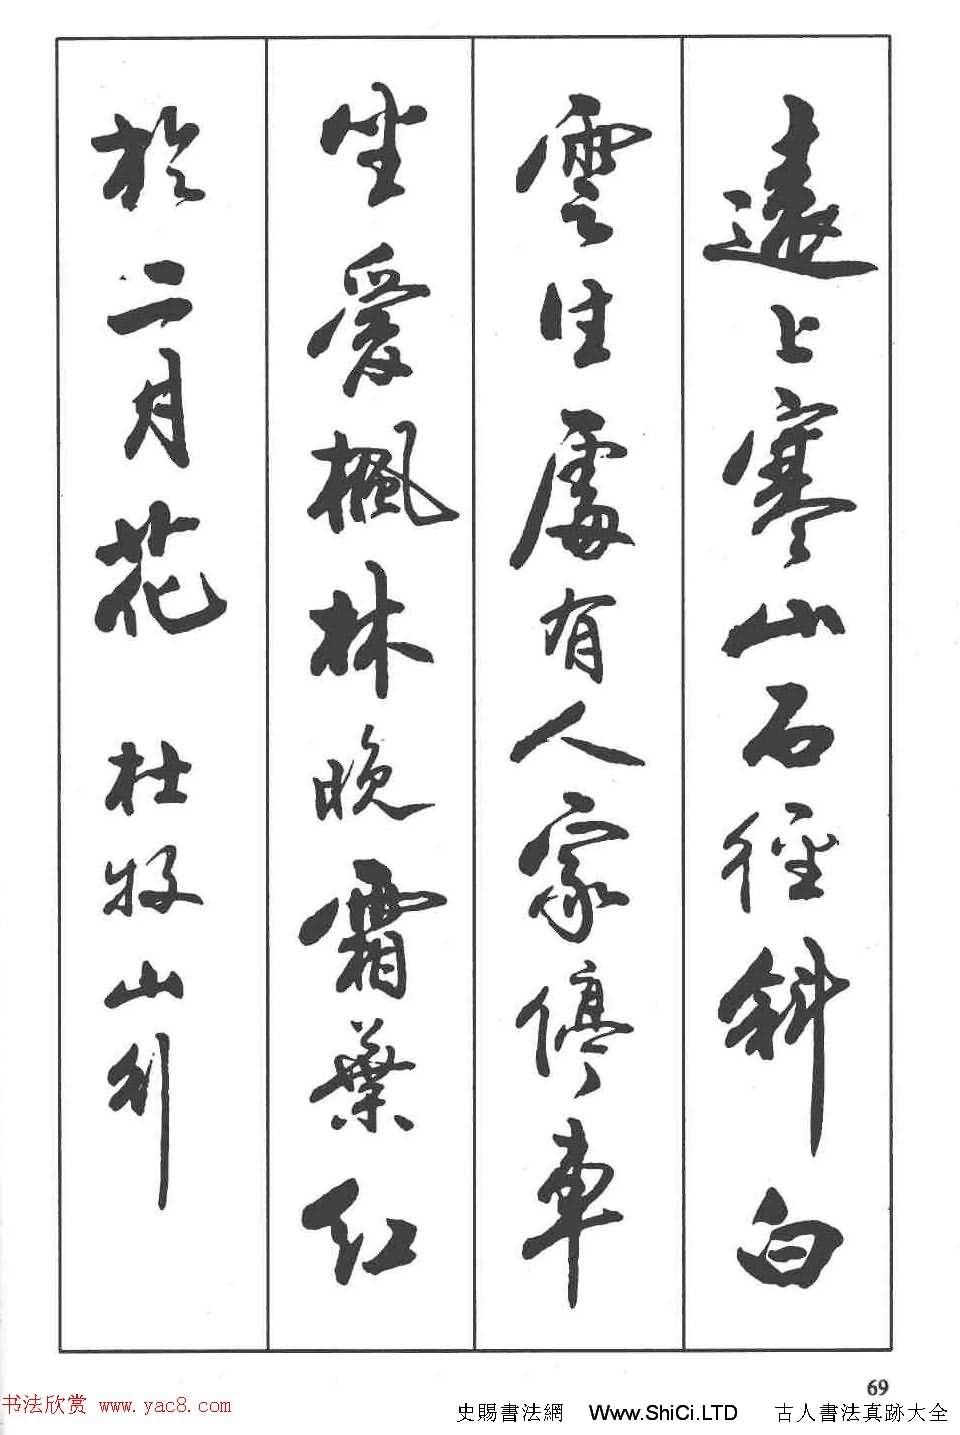 遠上寒山石徑斜白
雲生處有人家停車
坐愛楓林晚霜葉紅
於二月花 杜牧山行
69
书法欣赏 www.yac8.com
史賜書法網 Www.ShiCi.LTD 古人書法真跡大全